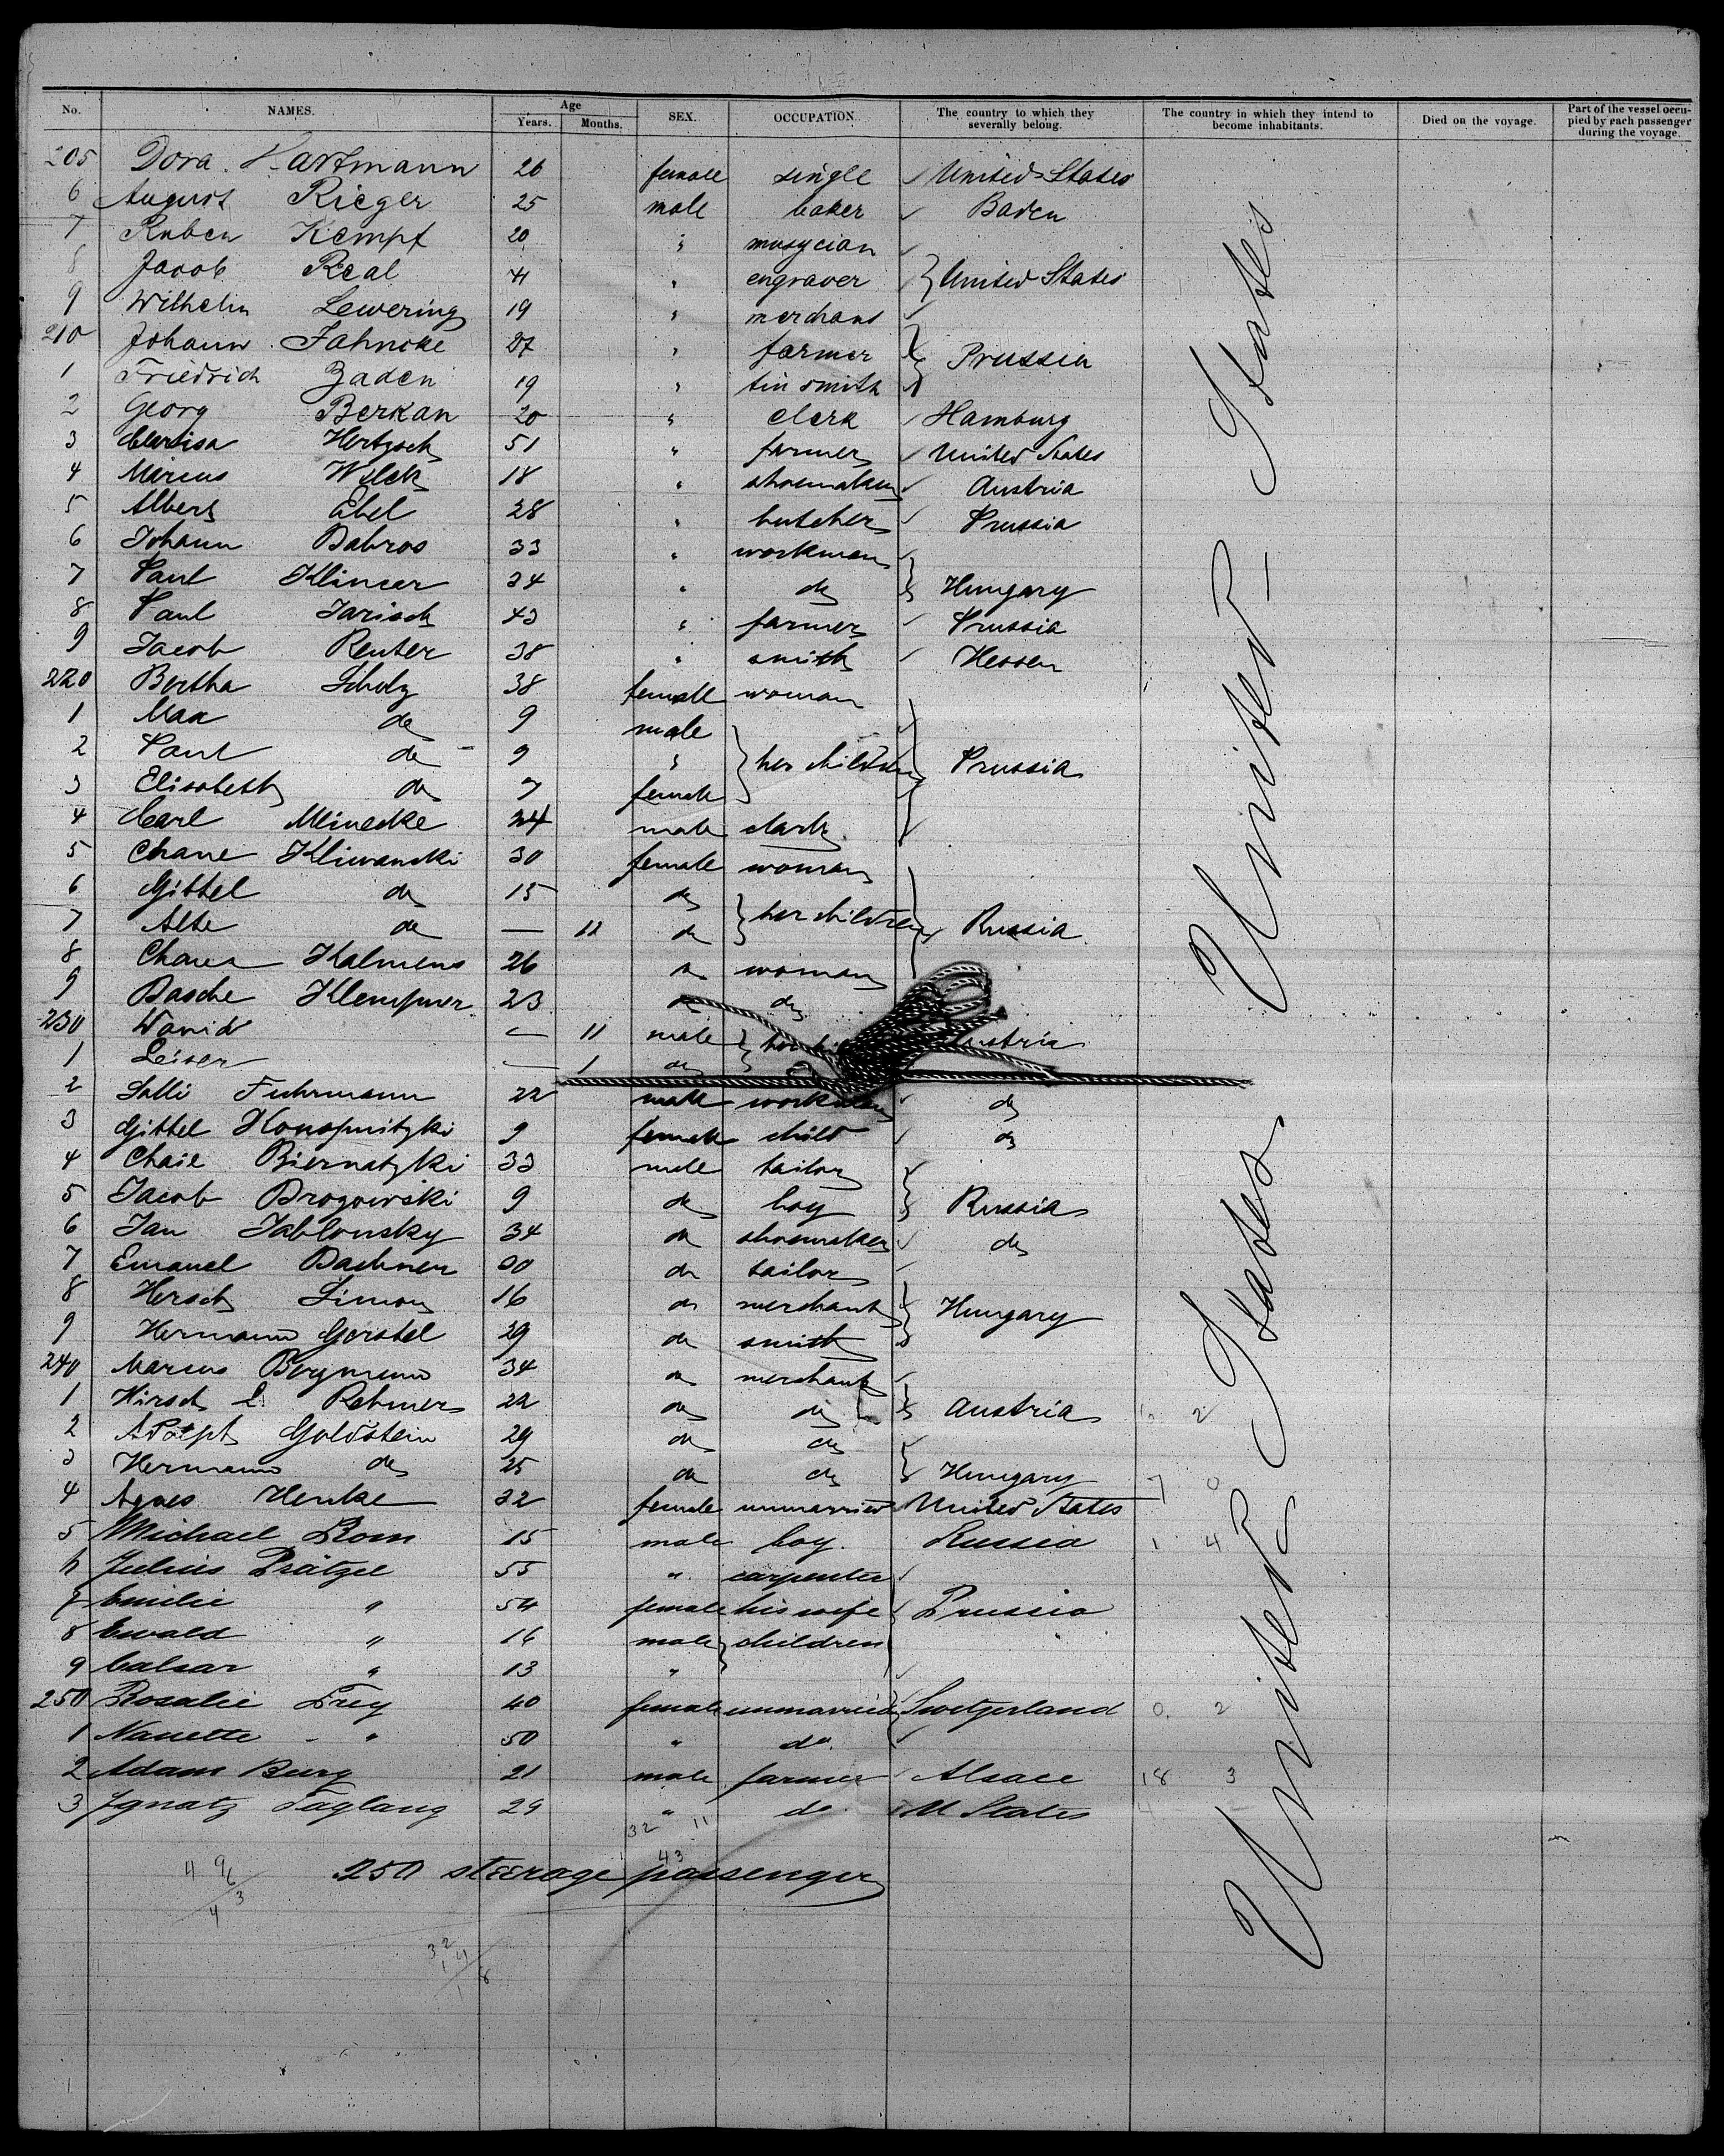 No. NAMES. Age Years. Months. SEX. OCCUPATION The country to which they severally belong. The country in which they intend to become inhabitants. Died on the voyage. Part of the vessel occupied by each passenger during the voyage.
205 Dora Hartmann 26 female single United States
6 August Rieger 25 male baker Baden
7 Ruben Kempf 20 " musycian
8 Jacob Real 41 " engraver } United States
9 Wilhelm Lewering 19 " merchant
210 Johann Jahncke 27 " farmer } Prussia
1 Friedrich Zaden 19 " tin smith
2 Georg Berkan 20 " clerk Hamburg
3 Hertzsch 51 " farmer United States
4 Marcus Wilck 18 " shoemaker Austria
5 Albert Ebel 28 " butcher Prussia
6 Johann Dabros 33 " workman
7 Paul Klincer 34 " do } Hungary
8 Paul Jarisch 43 " farmer Prussia
9 Jacob Reuter 38 " smith Hessen
220 Bertha Scholz 38 female woman
1 Max do 9 male
2 Paul do 9 " } her children } Prussia
3 Elisabeth do 7 female
4 Carl Meinecke 24 male clark
5 Chane Kliwanski 30 female woman
6 Gittel do 15 do
7 Alte do — 11 do } her children } Russia
8 Chawe Kalmens 26 do woman
9 Basche Klempner 23 do do
230 David — 11 male } Austria
1 Leiser — 1 do
2 Salli Fuhrmann 22 male workman do
3 Gittel Konopnitzki 9 female child do
4 Chail Biernatzki 33 male tailor
5 Jacob Brozowski 9 do boy } Russia
6 Jan Jablonsky 34 do shoemaker do
7 Emanuel Dachner 30 do tailor
8 Hersch Simon 16 do merchant } Hungary
9 Hermann Gerstel 29 do smith
240 Marcus Bergmann 34 do merchant
1 Hirsch L. Rehmer 22 do do } Austria 2
2 Adolph Goldstein 29 do do
3 Hermann do 25 do do } Hungary 7 0
4 Agnes Henke 32 female unmarried United States
5 Michael Bom 15 male boy. Russia 1 4
6 Julius Prätzel 55 " carpenter
7 Emilie " 54 female his wife } Prussia
8 Ewald " 16 male } children
9 Calsar " 13 "
250 Rosalie Frey 40 female unmarried } Switzerland 0 2
1 Nanette " 50 " do.
2 Adam Burg 21 male farmer Alsace 18 3
3 Ignatz Taglang 29 " do. U States 4
32 11
43
250 steerage passenger
4 96
4 3
United States
United States